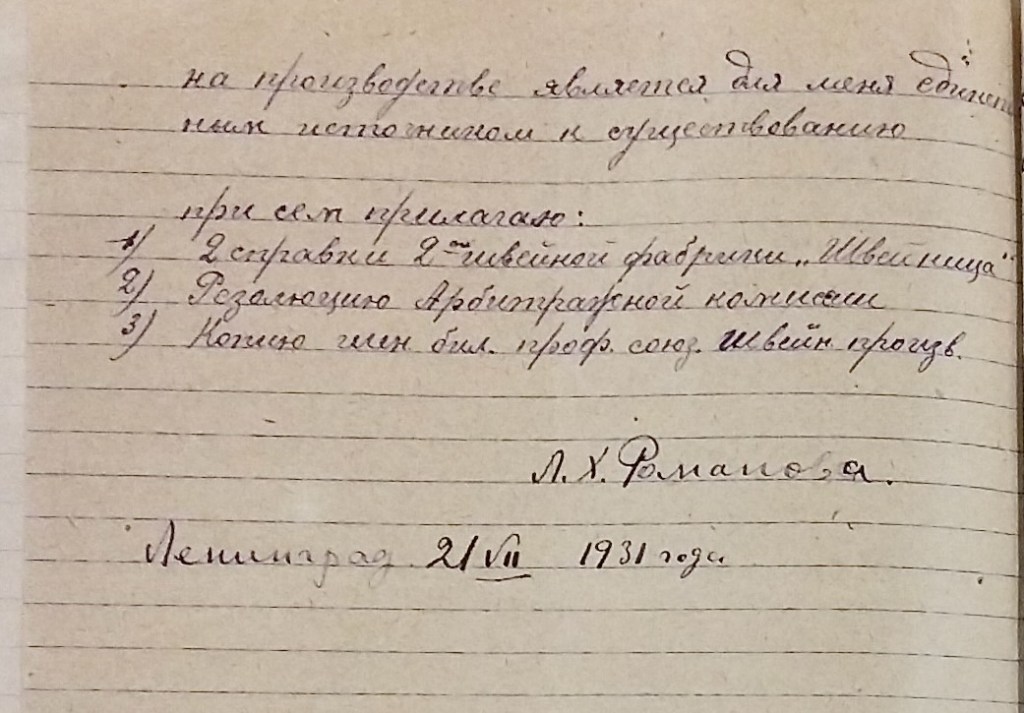 на производстве является для меня единст
ным источником к существованию
при сем прилагаю:
1) 2 справки 2ой швейной фабрики „Швейница"
2) Резолюцию Арбитражной комиссии
3) Копию член бил. проф. союз. Швейн произв.
Л. Х. Романова.
Ленинград 21 VII 1931 года